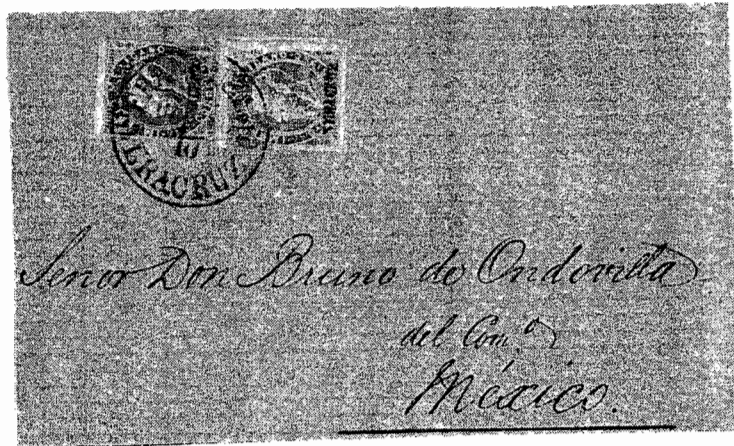 VERACRUZ
Señor Don Bruno de Ondovilla
del Com.º
México.